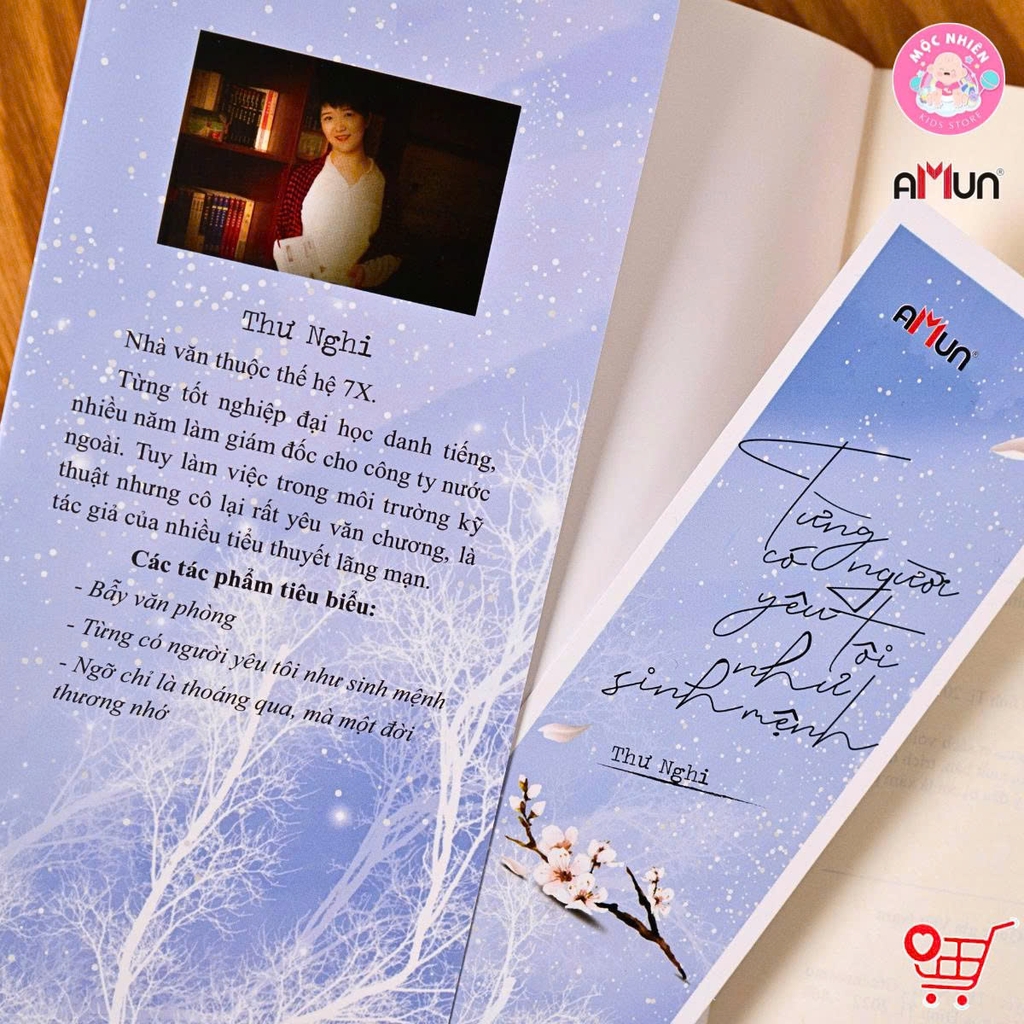 MỘC NHIÊN
KIDS STORE
AMUN®
Thư Nghi
Nhà văn thuộc thế hệ 7X.
Từng tốt nghiệp đại học danh tiếng,
nhiều năm làm giám đốc cho công ty nước
ngoài. Tuy làm việc trong môi trường kỹ
thuật nhưng cô lại rất yêu văn chương, là
tác giả của nhiều tiểu thuyết lãng mạn.
Các tác phẩm tiêu biểu:
- Bẫy văn phòng
- Từng có người yêu tôi như sinh mệnh
- Ngỡ chỉ là thoáng qua, mà một đời
thương nhớ
AMUN®
Từng
có người
yêu tôi
như
sinh mệnh
Thư Nghi